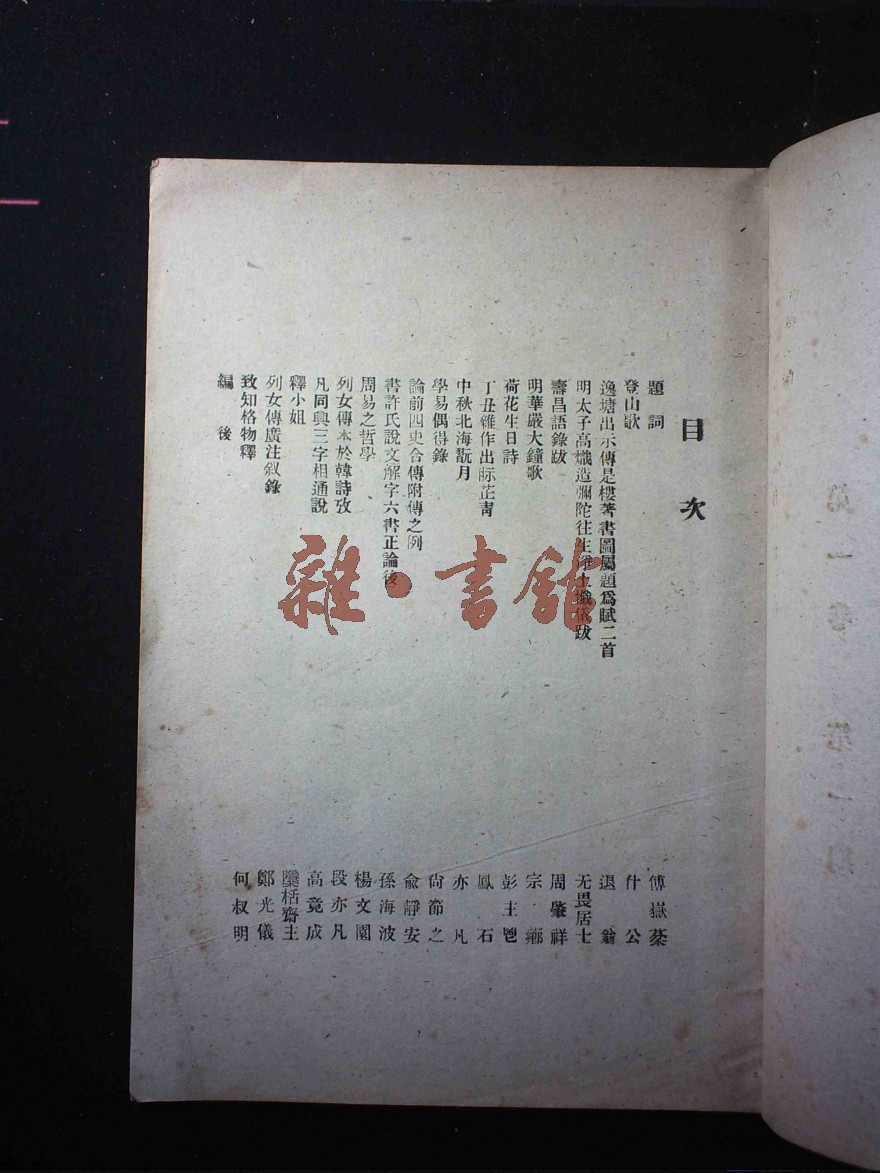 目次
題詞
傅嶽棻
登山歌
什公
逸塘出示傳是樓著書圖屬題爲賦二首
退翁
明太子高熾造彌陀往生淨土懺儀跋
无畏居士
壽昌語錄跋
周肇祥
明華嚴大鐘歌
宗
荷花生日詩
彭主鬯
丁丑雜作出际芷青
鳳石
中秋北海翫月
亦凡
學易偶得錄
尙節之
論前四史合傳附傳之例
兪靜安
書許氏說文解字六書正論後
孫海波
周易之哲學
楊文園
列女傳本於韓詩攷
段亦凡
凡同與三字相通說
高竟成
釋小姐
栝齋主
列女傳廣注叙錄
鄭光儀
致知格物釋
何叔明
編後
雜·書館